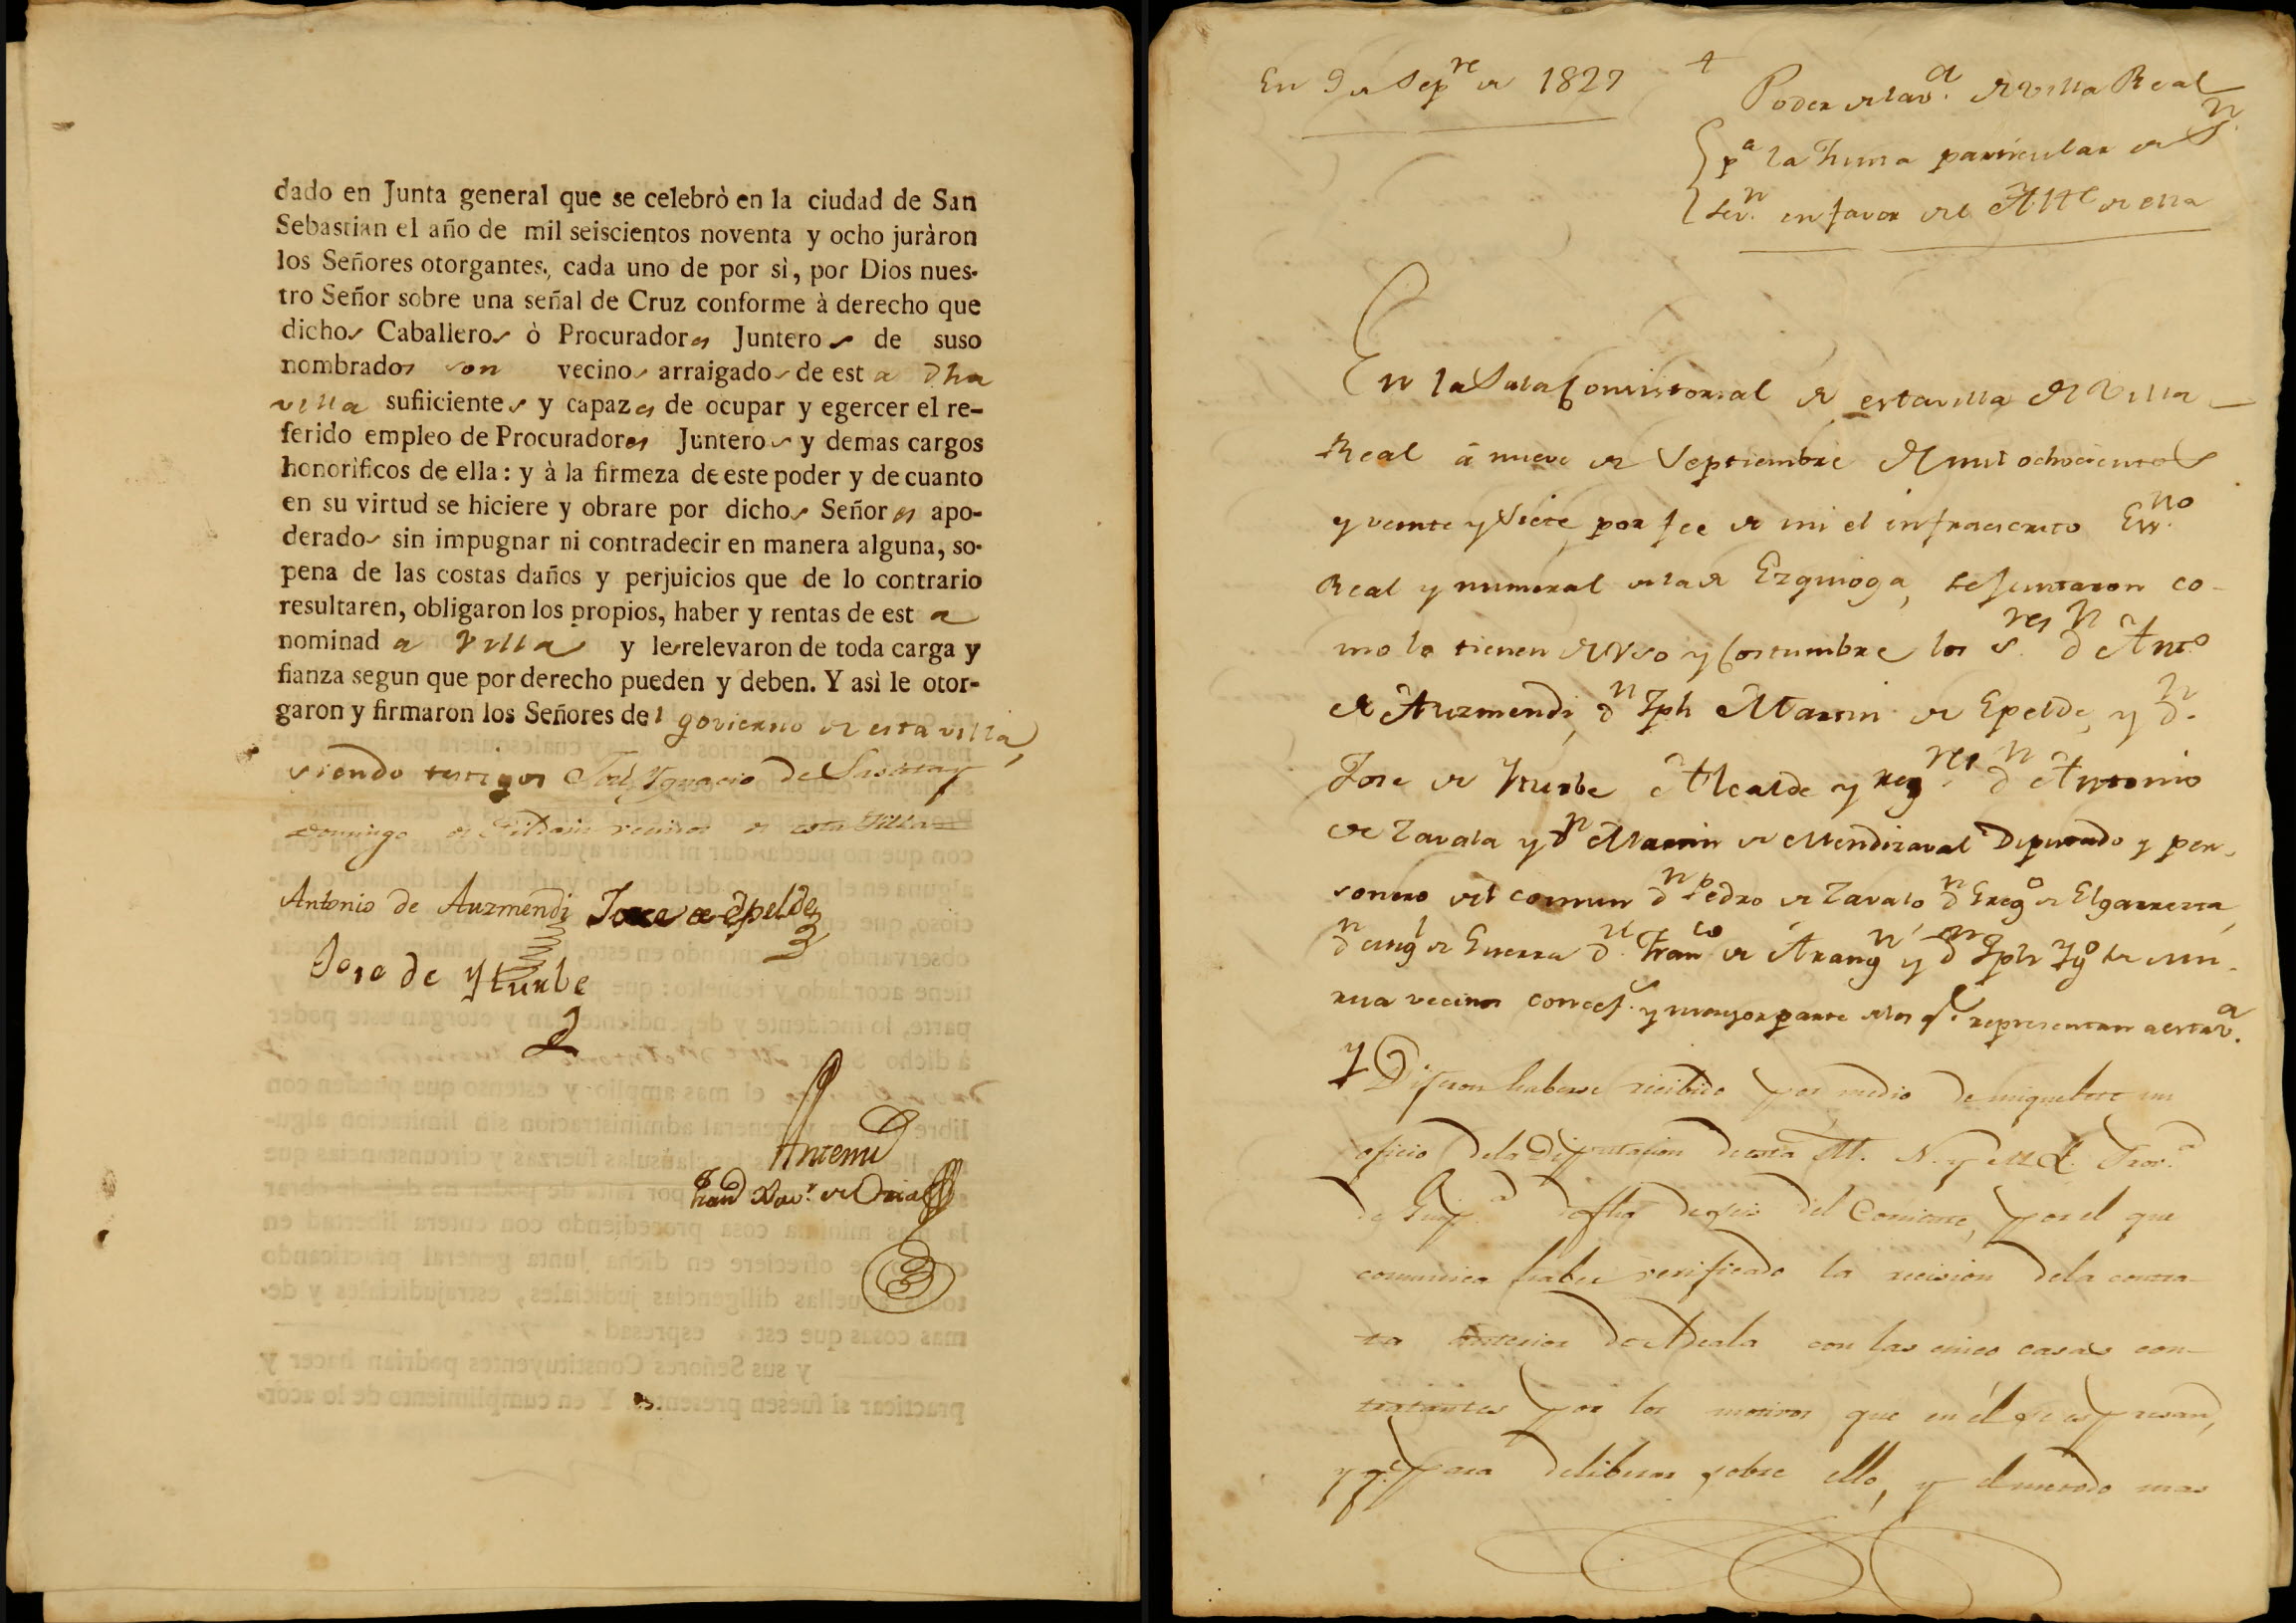 dado en Junta general que se celebrò en la ciudad de San
Sebastian el año de mil seiscientos noventa y ocho juràron
los Señores otorgantes, cada uno de por sì, por Dios nues-
tro Señor sobre una señal de Cruz conforme à derecho que
dichos Caballeros ò Procuradores Junteros de suso
nombrados son vecinos arraigados de esta dha
villa sufiicientes y capazes de ocupar y egercer el re-
ferido empleo de Procuradores Junteros y demas cargos
honorìficos de ella: y à la firmeza de este poder y de cuanto
en su virtud se hiciere y obrare por dichos Señores apo-
derados sin impugnar ni contradecir en manera alguna, so-
pena de las costas daños y perjuicios que de lo contrario
resultaren, obligaron los propios, haber y rentas de esta
nominada villa y les relevaron de toda carga y
fianza segun que por derecho pueden y deben. Y asì le otor-
garon y firmaron los Señores del govierno de esta villa,
siendo testigos José Ygnacio de
Domingo de vecinos de esta Villa
Antonio de Auzmendi Jose de Epelde
Jose de Yturbe
Antemi
de Oria
En 9 de Sepre de 1827
Poder de la va. de Villa Real
pa la Junta particular de S.n
Sevn. en favor del Alte de ella
En la Sala Consistorial de esta villa de Villa
Real á nueve de Septiembre de mil ochocientos
y veinte y siete por fee de mi el infraescrito Essno
Real y numeral de la de Ezquioga, se juntaron co-
mo lo tienen de Vso y Costumbre los Sres Dn Anto
de Auzmendi, Dn Jph Martin de Epelde, y Dn.
Jose de Yturbe Alcalde y regres Dn Antonio
de Zavala y Dn Martin de Mendizaval Diputado y per-
sonero del comun Dn Pedro de Zavalo Dn Grego de Elgarresta,
Dn Migl de Guerra Dn Franco de Arangn y Dn Jph Ygo de
vecinos concejs. y mayor parte de los qe. representan a esta va.
Y Dijeron haberse recibido por medio de miquelete un
oficio de la Diputacion de esta M. N. y M. L. Prova
de Guipa. de fha de seis del Corriente, por el que
comunica haber verificado la recision de la contra-
ta anterior de Alcala con las cinco casas con-
tratantes por los motivos que en él se espresan,
y qe para deliberar sobre ello, y el metodo mas